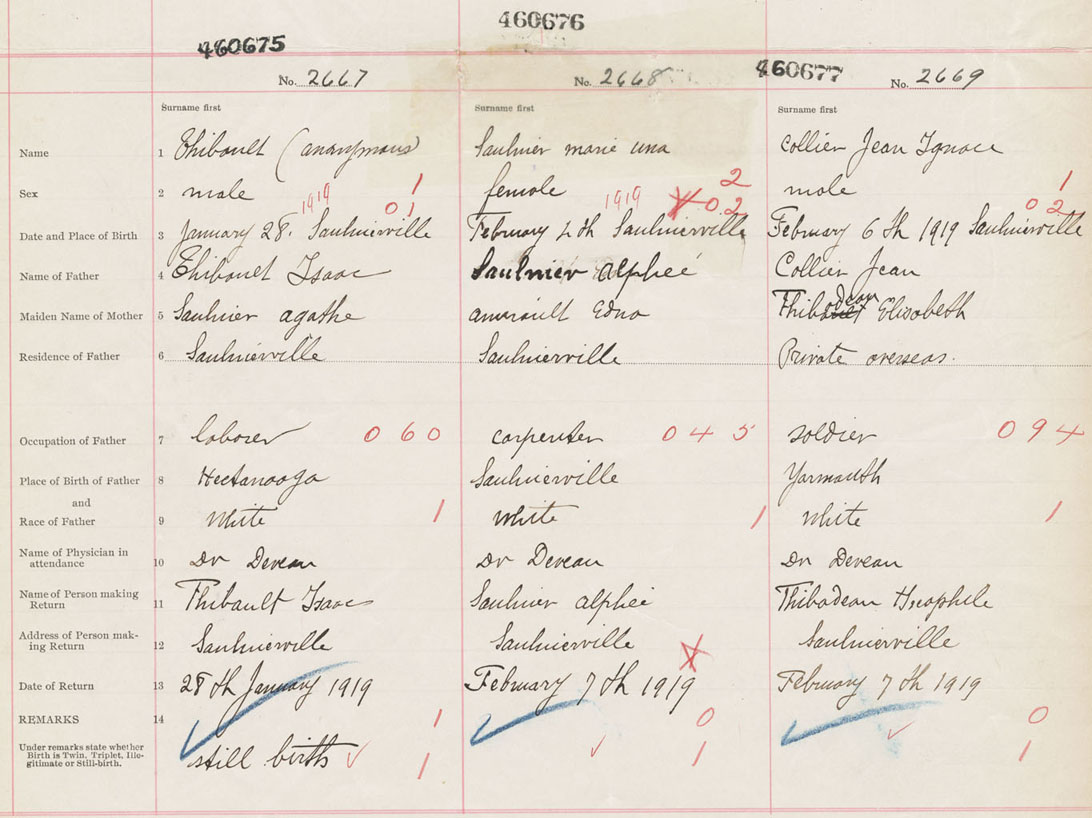 460675
460676
460677
No. 2667
No. 2668
No. 2669
Surname first
Surname first
Surname first
Name 1 Thibault (anonymous) Saulnier marie una Collier Jean Ignace
Sex 2 male 1 female 2 male 1
1919 01 1919 02 02
Date and Place of Birth 3 January 28. Saulnierville February 4th Saulnierville February 6th 1919 Saulnierville
Name of Father 4 Thibault Isaac Saulnier alpheé Collier Jean
Maiden Name of Mother 5 Saulnier agathe amirault Edna Thibodeau Elisabeth
Residence of Father 6 Saulnierville Saulnierville Private overseas.
Occupation of Father 7 laborer 060 carpenter 045 soldier 094
Place of Birth of Father 8 Hectanooga Saulnierville Yarmouth
and
Race of Father 9 White 1 White 1 White 1
Name of Physician in
attendance 10 Dr Deveau Dr Deveau Dr Deveau
Name of Person making
Return 11 Thibault Isaac Saulnier alpheé Thibodeau Theophile
Address of Person mak-
ing Return 12 Saulnierville Saulnierville Saulnierville
Date of Return 13 28th January 1919 February 7th 1919 February 7th 1919
REMARKS 14 1 0 0
Under remarks state whether
Birth is Twin, Triplet, Ille-
gitimate or Still-birth.
still birth 1 1 1